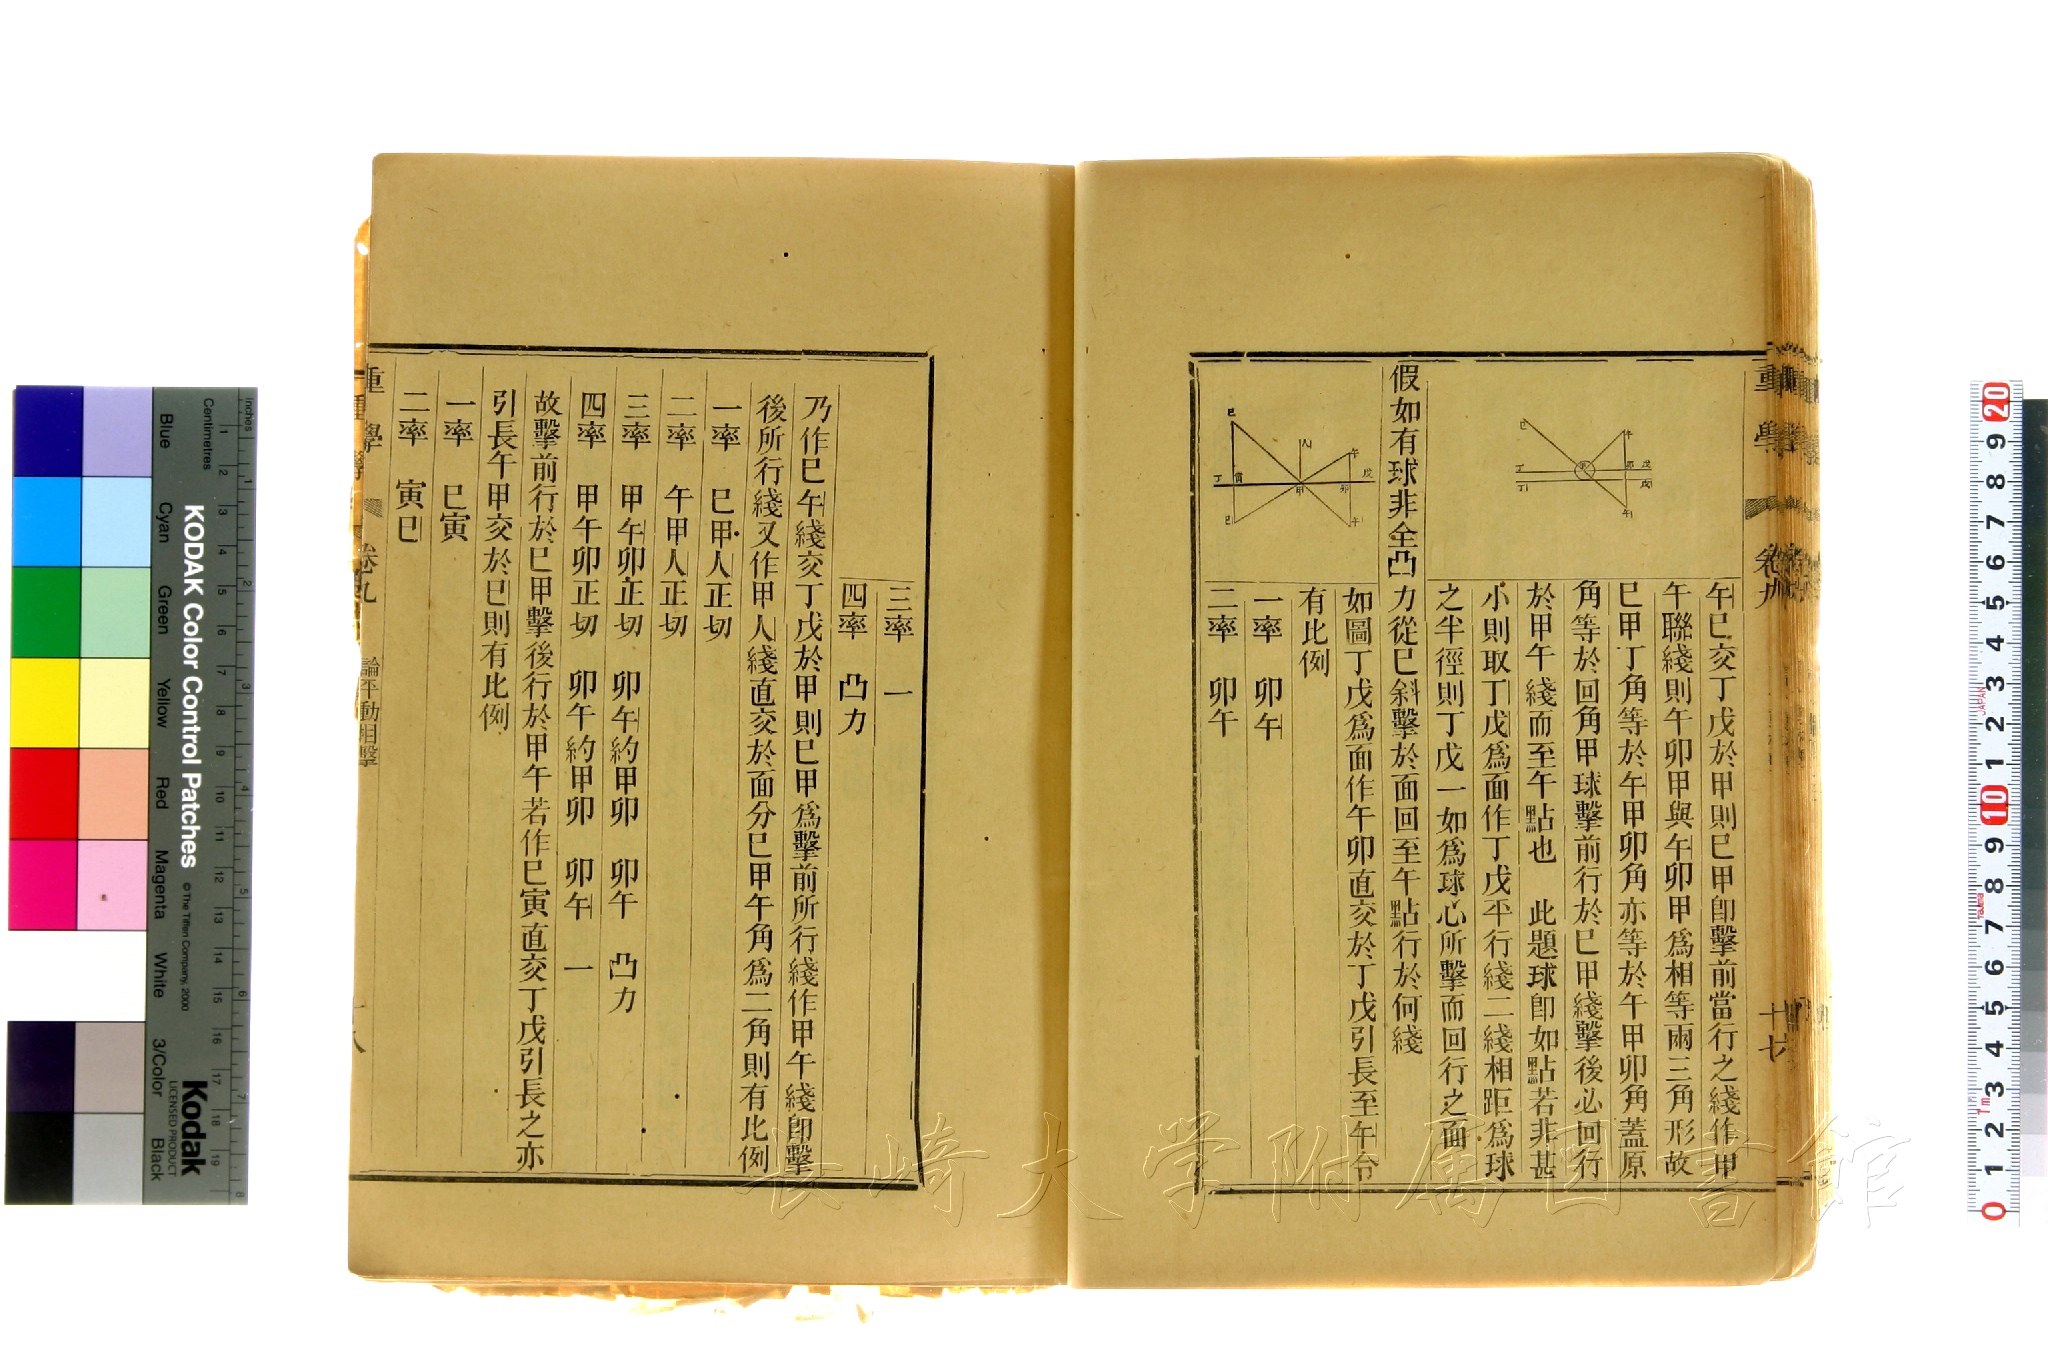 重學
卷九
十七
午巳交丁戊於甲則巳甲卽擊前當行之綫作甲
午聯綫則午卯甲與午卯甲爲相等兩三角形故
巳甲丁角等於午甲卯角亦等於午甲卯角蓋原
角等於回角甲球擊前行於巳甲綫擊後必回行
於甲午綫而至午點也 此題球卽如點若非甚
小則取丁戊爲面作丁戊平行綫二綫相距爲球
之半徑則丁戊一如爲球心所擊而回行之面
假如有球非全凸力從巳斜擊於面回至午點行於何綫
如圖丁戊爲面作午卯直交於丁戊引長至午令
有比例
一率 卯午
二率 卯午
三率 一
四率 凸力
乃作巳午綫交丁戊於甲則巳甲爲擊前所行綫作甲午綫卽擊
後所行綫又作甲人綫直交於面分巳甲午角爲二角則有比例
一率 巳甲人正切
二率 午甲人正切
三率 甲午卯正切 卯午約甲卯 卯午 凸力
四率 甲午卯正切 卯午約甲卯 卯午 一
故擊前行於巳甲擊後行於甲午若作巳寅直交丁戊引長之亦
引長午甲交於巳則有比例
一率 巳寅
二率 寅巳
重學
卷九
論平動相擊
十八
KODAK Color Control Patches
© The Tiffen Company, 2000
Kodak
LICENSED PRODUCT
Inches
Centimetres
Blue
Cyan
Green
Yellow
Red
Magenta
White
3/Color
Black
長崎大学附属図書館